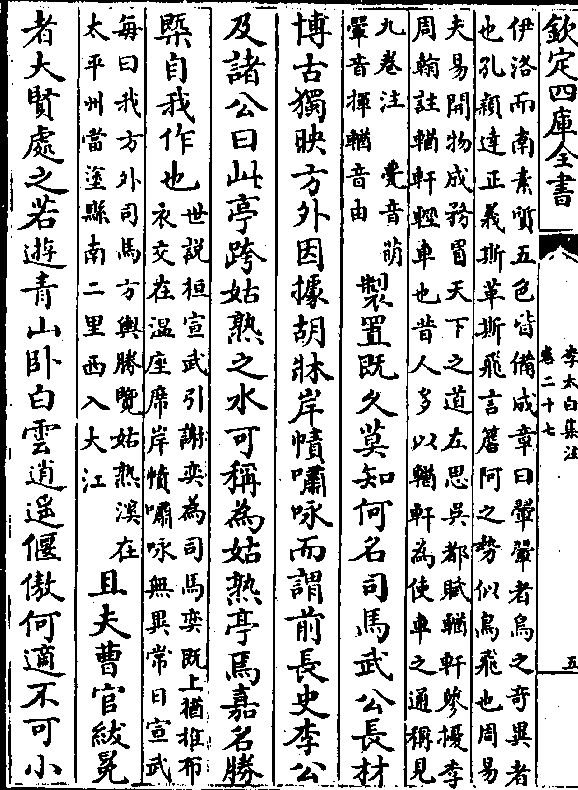 欽定四庫全書
李太白集注
卷二十七
五
伊洛而南素質五色皆備成章曰翬翬者鳥之奇異者
也孔穎達正義斯革斯飛言簷阿之勢似鳥飛也周易
夫易開物成務冒天下之道左思吳都賦輶軒蓼擾李
周翰註輶軒輕車也昔人多以輶軒為使車之通稱見
九卷注 甍音萌
翬音揮輶音由
製置既久莫知何名司馬武公長材
博古獨映方外因據胡牀岸幘嘯咏而謂前長史李公
及諸公曰此亭跨姑熟之水可稱為姑熟亭焉嘉名勝
槩自我作也
世說桓宣武引謝奕為司馬奕既上猶推布
衣交在温座席岸幘嘯咏無異常日宣武
每曰我方外司馬方輿勝覽姑熟溪在
太平州當塗縣南二里西入大江
且夫曹官紱冕
者大賢處之若遊青山卧白雲逍遥偃傲何適不可小